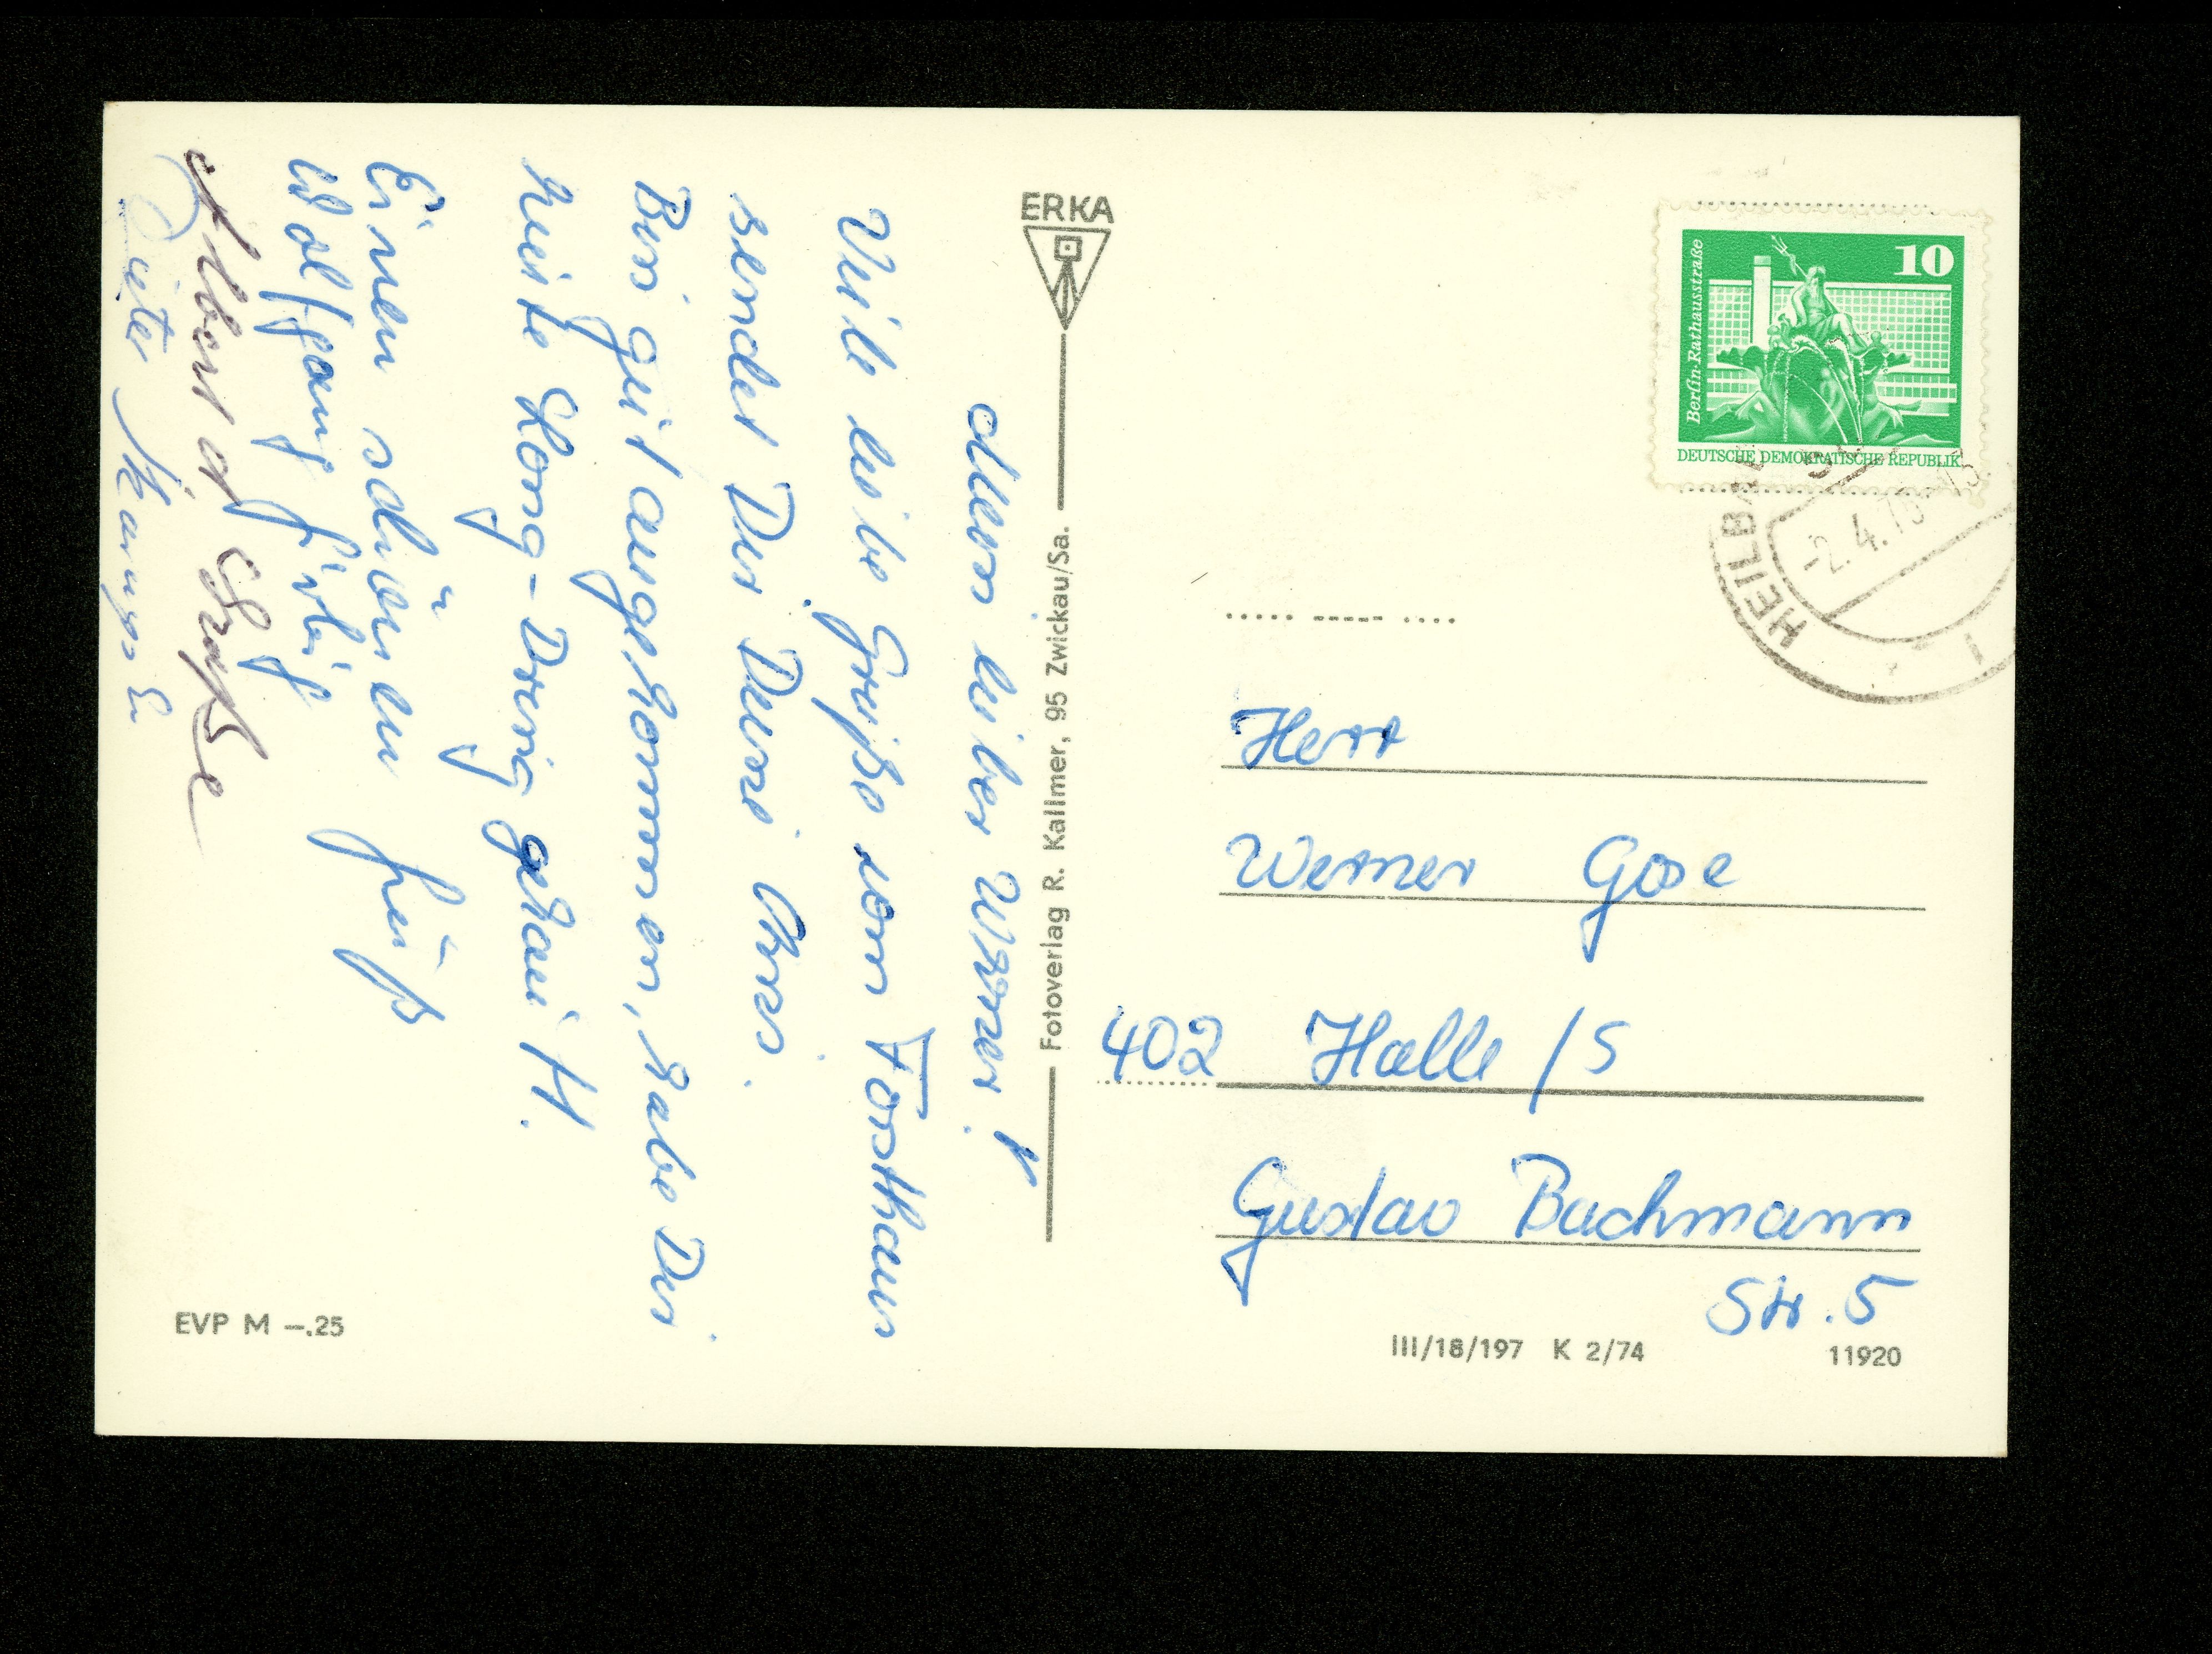 Mein lieber Werner!
Viele liebe Grüße vom Forsthaus
sendet Dir Deine Chris.
Bin gut angekommen, habe Dir
heute Long-Dring gekauft.
Einen schönen Gruß
Wolfgang
Albert d Große
Dieter
ERKA
Fotoverlag R. Kallmer, 95 Zwickau/Sa.
EVP M –.25
10
Berlin-Rathausstraße
DEUTSCHE DEMOKRATISCHE REPUBLIK
HEILBA
-2.4.75-15
1
Herr
Werner Gose
402 Halle/S
Gustav Bachmann
Str. 5
III/18/197 K 2/74
11920